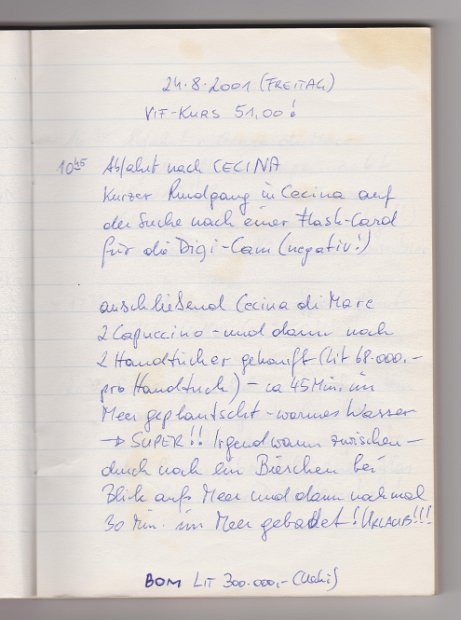 24.8.2001 (FREITAG)
VIF-KURS 51,00!
10 45 Abfahrt nach CECINA
Kurzer Rundgang in Cecina auf
der Suche nach einer Flash-Card
für die Digi-Cam (negativ!)
anschließend Cecina di Mare
2 Capuccino - und dann noch
2 Handtücher gekauft (Lit 68.000,-
pro Handtuch) - ca 45 Min. im
Meer geplantscht - warmes Wasser
→ SUPER!! Irgendwann zwischen-
durch noch ein Bierchen bei
Blick aufs Meer und dann nochmal
30 Min. im Meer gebadet! URLAUB!!!
BOM LIT 300.000,-